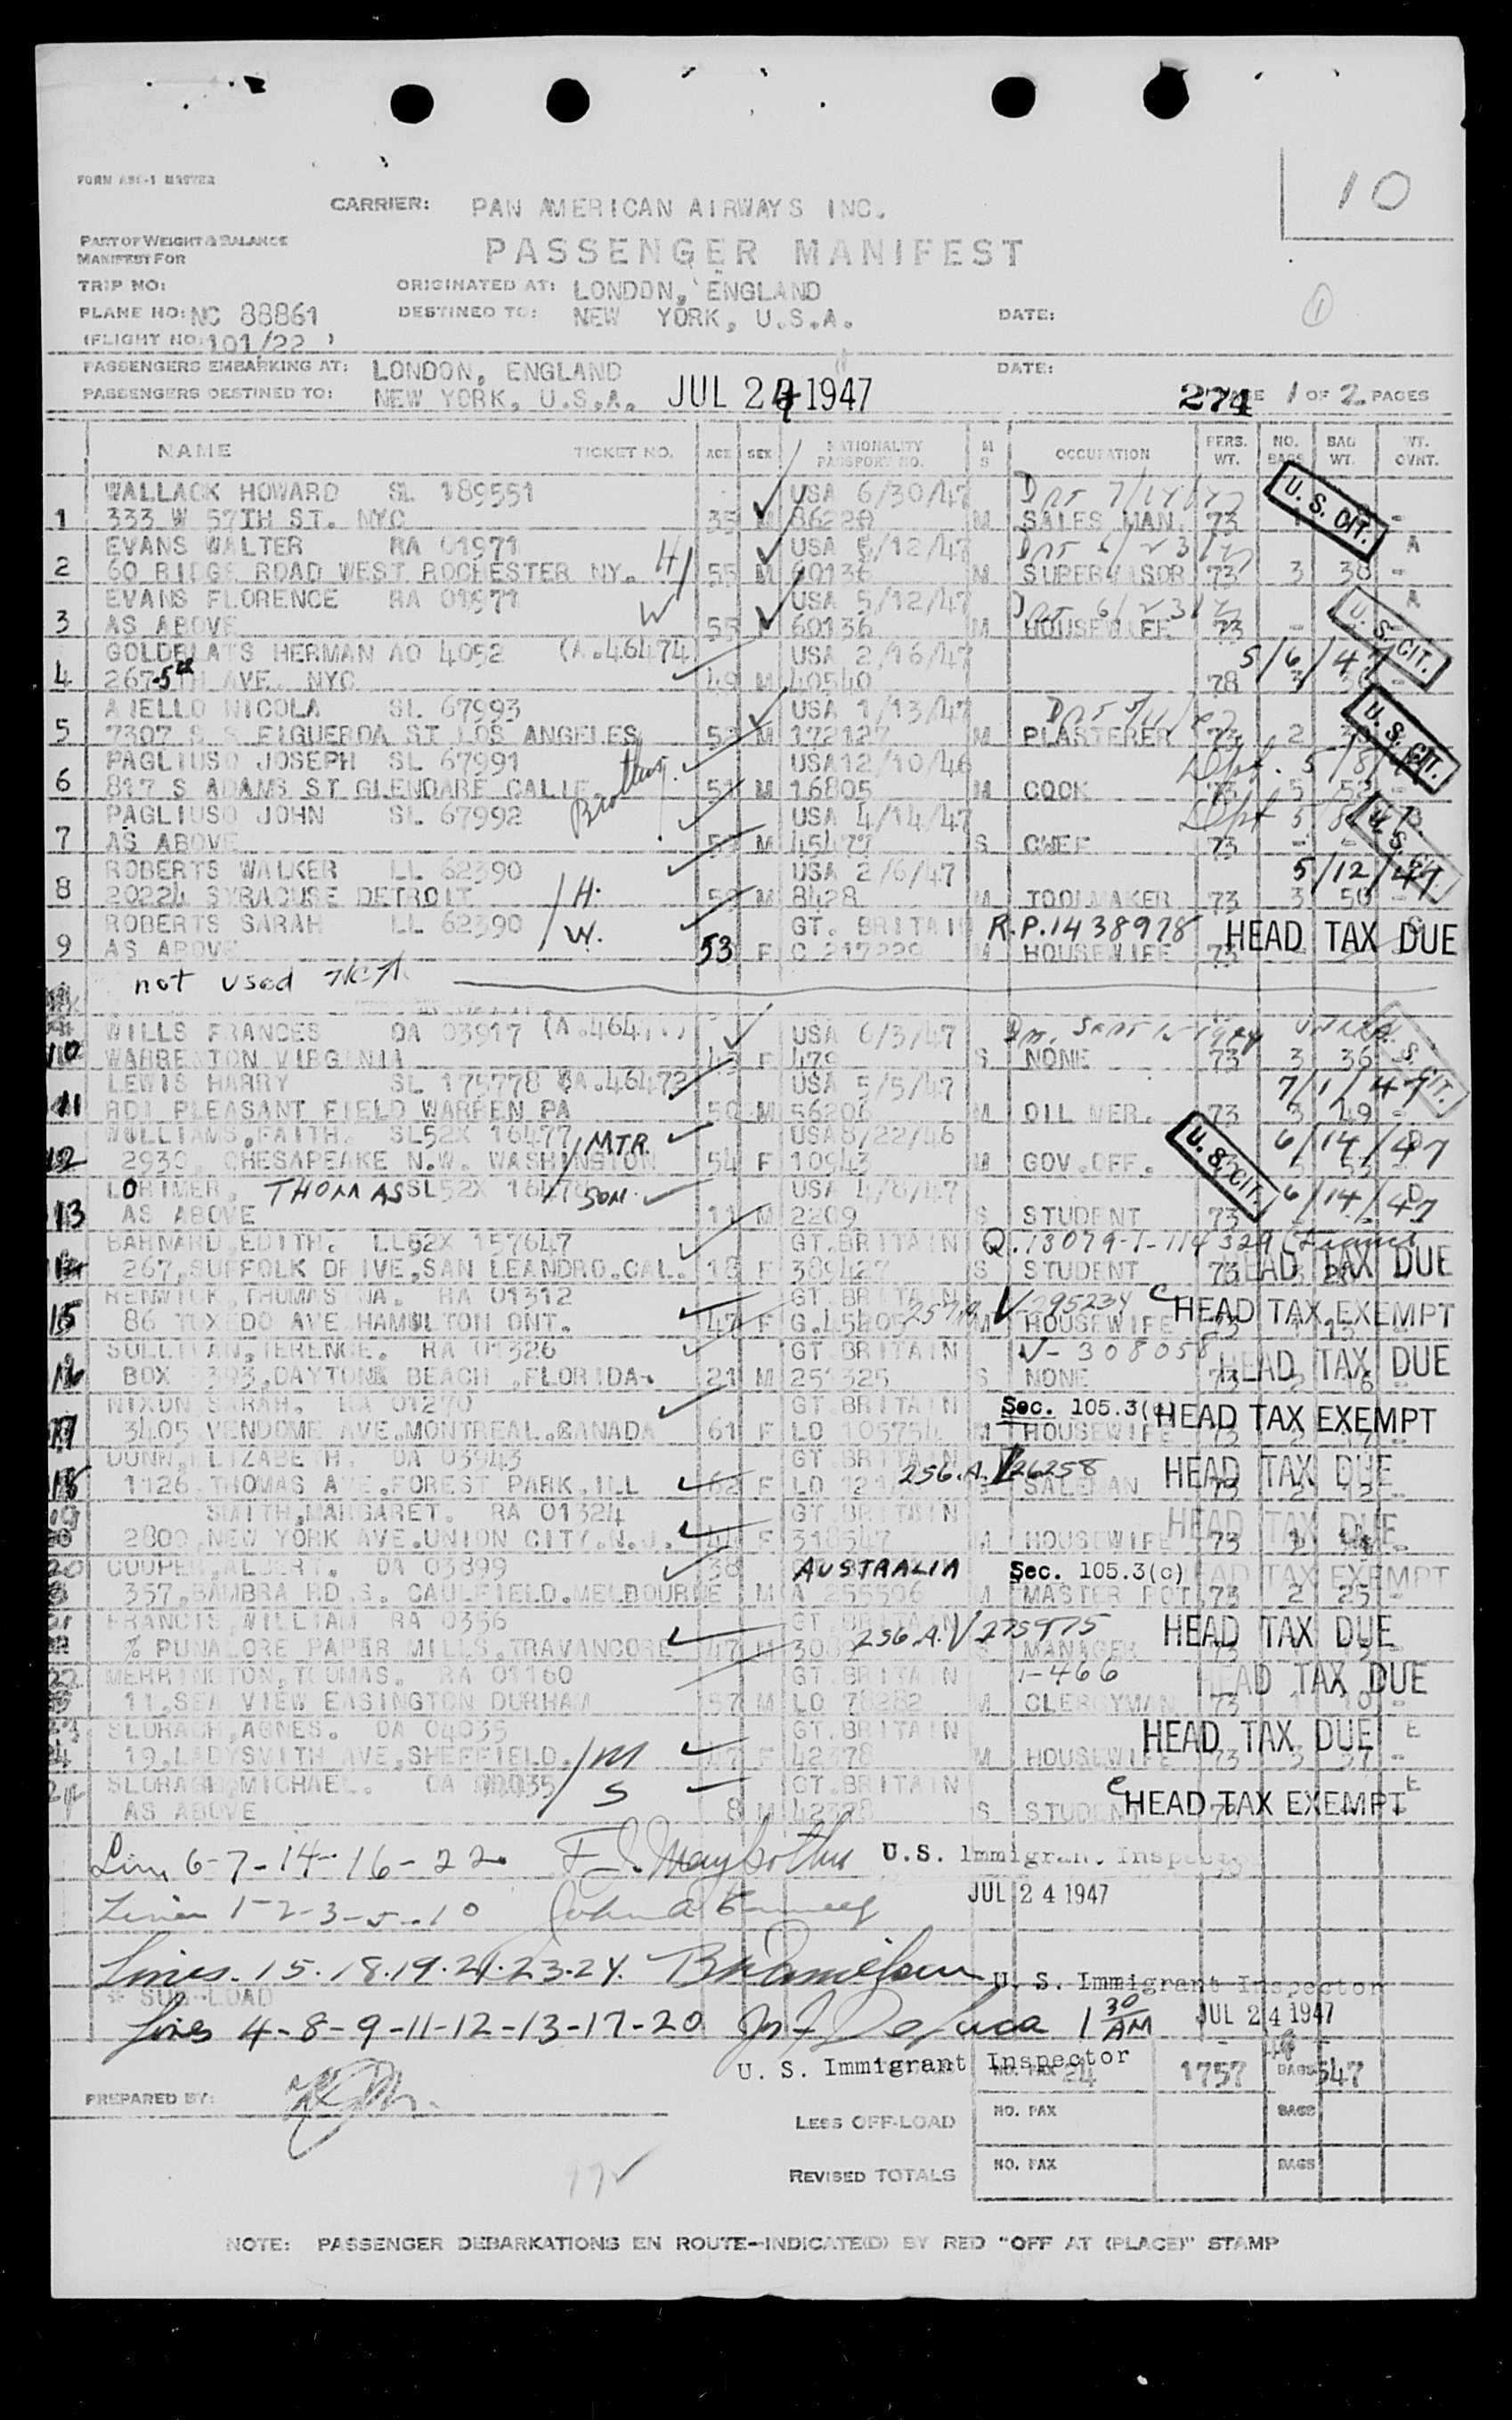 10
FORM ABC-1 MASTER
CARRIER: PAN AMERICAN AIRWAYS INC.
PART OF WEIGHT & BALANCE
MANIFEST FOR
PASSENGER MANIFEST
TRIP NO:
ORIGINATED AT: LONDON, ENGLAND
PLANE NO: NC 88861
DESTINED TO: NEW YORK, U.S.A.
DATE:
1
(FLIGHT NO: 101/22 )
PASSENGERS EMBARKING AT: LONDON, ENGLAND
DATE:
PASSENGERS DESTINED TO: NEW YORK, U.S.A.
JUL 24 1947
274 1 OF 2 PAGES
NAME TICKET NO. AGE SEX NATIONALITY PASSPORT NO. M S OCCUPATION PERS. WT. NO. BAGS BAG WT. WT. OVNT.
WALLACK HOWARD SL 189551 USA 6/30/47
1 333 W 57TH ST. NYC 35 M 86228 M SALES MAN. 73 U. S. CIT.
EVANS WALTER RA 01971 USA 5/12/47 A
2 60 RIDGE ROAD WEST ROCHESTER NY. H 55 M 60136 M SUPERVISOR 73 3 38 -
EVANS FLORENCE RA 01971 W USA 5/12/47 A
3 AS ABOVE 55 F 60136 M HOUSEWIFE 73 - U. S. CIT.
GOLDBLATS HERMAN AO 4052 (A.46474) USA 2/16/47 5/6/47
4 267-5TH AVE. NYC 49 M 40540 78
AIELLO NICOLA SL 67993 USA 1/13/47
5 7307 S FIGUEROA ST LOS ANGELES M 172127 M PLASTERER 73 2 U. S. CIT.
PAGLIUSO JOSEPH SL 67991 USA12/10/46 Dpt. 5/8/
6 817 S ADAMS ST GLENDARE CALIF 51 M 16805 M COOK 73 5 52
PAGLIUSO JOHN SL 67992 USA 4/14/47 Dpt 5/8
7 AS ABOVE M 45479 S CHEF 73 - U. S. CIT.
ROBERTS WALKER LL 62390 USA 2/6/47 5/12/47
8 20224 SYRACUSE DETROIT H. M 8428 M TOOLMAKER 73 3 50
ROBERTS SARAH LL 62390 W. GT. BRITAIN R.P.1438978 HEAD TAX DUE
9 AS ABOVE 53 F C 217229 M HOUSEWIFE 73
not used
WILLS FRANCES OA 03917 USA 6/3/47
10 WARRENTON VIRGINIA 43 F 479 S NONE 73 3 36 U. S. CIT.
LEWIS HARRY SL 175778 (A.46472 USA 5/5/47 7/1/47
11 RD1 PLEASANT FIELD WARREN PA 50 M 56206 M OIL MER. 73 3 49 -
WILLIAMS, FAITH. SL52X 16477 MTR. USA8/22/46 6/14/47
12 2930, CHESAPEAKE N.W. WASHINGTON 54 F 10943 M GOV.OFF. U. S. CIT.
LORIMER, THOMAS SL52X 16478 SON. USA 4/8/47 6/14/47
13 AS ABOVE 11 M 2209 S STUDENT 73
BARNARD, EDITH. LL52X 157647 GT.BRITAIN HEAD TAX DUE
14 267, SUFFOLK DRIVE, SAN LEANDRO. CAL. 18 F 389427 S STUDENT 73
RENWICK, THOMASINA. RA 01312 GT. BRITAIN V-295234 HEAD TAX EXEMPT
15 86 TUXEDO AVE HAMILTON ONT. 47 F M HOUSEWIFE 73
SULLIVAN, TERENCE. RA 01326 GT.BRITAIN V-308058 HEAD TAX DUE
16 BOX 5393, DAYTONA BEACH, FLORIDA. 21 M 251325 S NONE 73
NIXON SARAH. RA 01270 GT.BRITAIN Sec. 105.3(c) HEAD TAX EXEMPT
17 3405 VENDOME AVE. MONTREAL. CANADA 61 F LO 105754 M HOUSEWIFE 73
DUNN, ELIZABETH. OA 03943 GT.BRITAIN 256.A. V26258 HEAD TAX DUE
18 1126 THOMAS AVE. FOREST PARK, ILL 62 F LO SALEMAN 73 2
SMITH, MARGARET. RA 01324 GT.BRITAIN HEAD TAX DUE
19 2800, NEW YORK AVE. UNION CITY. N.J. F 318547 M HOUSEWIFE 73
COOPER, ALBERT. OA 03899 38 AUSTRALIA Sec. 105.3(c) HEAD TAX EXEMPT
20 357, BAMBRA RD. S. CAULFIELD. MELBOURNE M A 255506 M MASTER POT. 73 2 25 -
FRANCIS, WILLIAM RA 0356 GT.BRITAIN 256 A. V275975 HEAD TAX DUE
21 % PUNALORE PAPAR MILLS, TRAVANCORE 47 M S MANAGER 73
MERRINGTON, THOMAS. RA 01160 GT.BRITAIN 1-466 HEAD TAX DUE
22 11, SEA VIEW EASINGTON DURHAM 57 M LO 78282 M CLERGYMAN 73 1 10 -
SLORACH, AGNES. OA 04035 GT.BRITAIN HEAD TAX DUE E
19, LADYSMITH AVE, SHEFFIELD. M 47 F 42378 M HOUSEWIFE 73 3 37 -
SLORACH, MICHAEL. OA 04035 S GT.BRITAIN HEAD TAX EXEMPT E
24 AS ABOVE 8 M 42378 S STUDENT
Lines 6-7-14-16-22 U.S. Immigrant Inspector
JUL 24 1947
Lines 1-2-3-5-10
Lines. 15.18.19.21.23.24. U. S. Immigrant Inspector
* SUB-LOAD
JUL 24 1947
Lines 4-8-9-11-12-13-17-20 1 30 AM
U. S. Immigrant Inspector
NO. PAX 24 1757 BAGS 547
PREPARED BY:
LESS OFF-LOAD NO. PAX BAGS
REVISED TOTALS NO. PAX BAGS
NOTE: PASSENGER DEBARKATIONS EN ROUTE—INDICATE(D) BY RED "OFF AT (PLACE)" STAMP